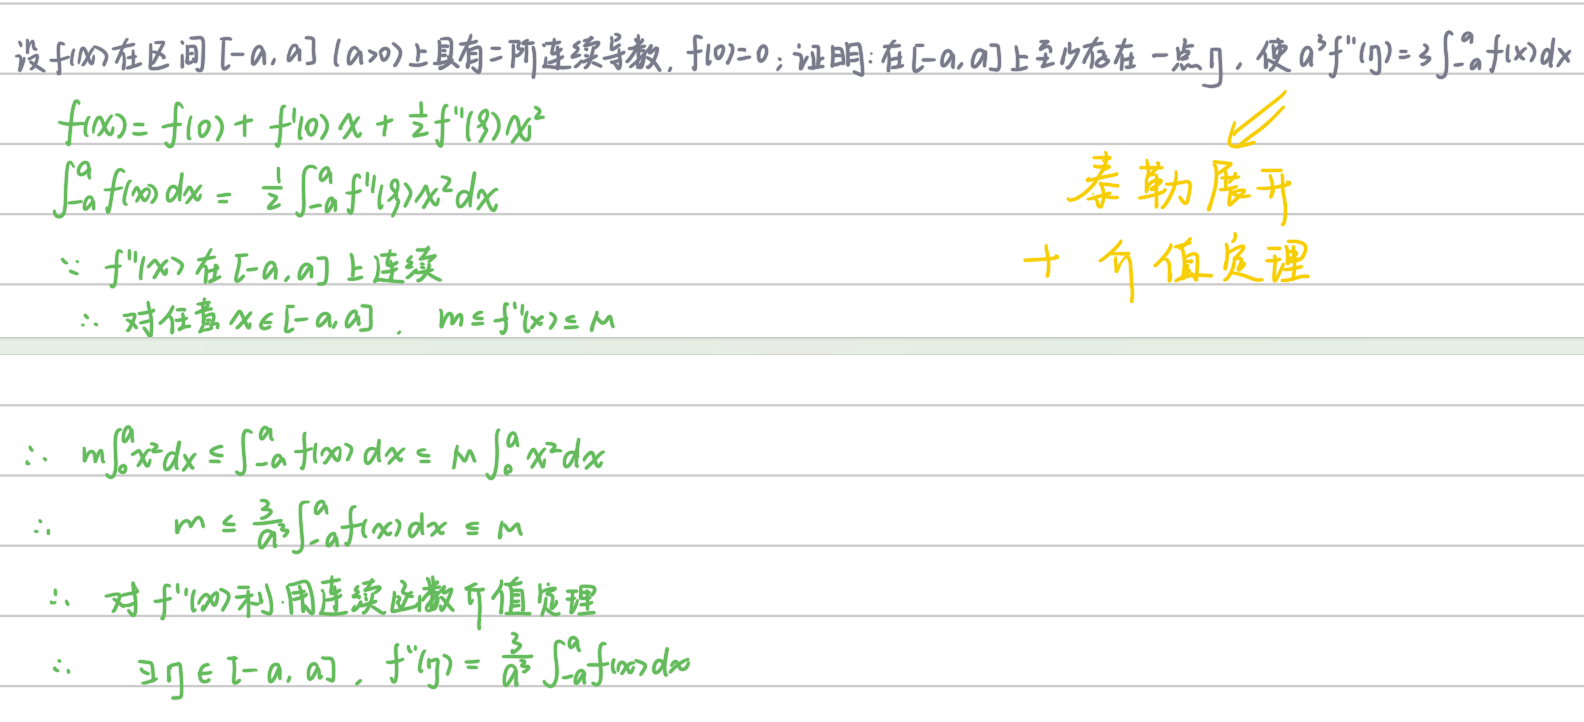 设f(x)在区间[-a,a](a>0)上具有二阶连续导数,f(0)=0;证明:在[-a,a]上至少存在一点η,使a³f''(η)=3∫_{-a}^{a}f(x)dx
f(x)=f(0)+f'(0)x+½f''(ξ)x²
∫_{-a}^{a}f(x)dx=½∫_{-a}^{a}f''(ξ)x²dx
泰勒展开
+介值定理
∵ f''(x)在[-a,a]上连续
∴ 对任意x∈[-a,a],m≤f''(x)≤M
∴ m∫_{0}^{a}x²dx≤∫_{-a}^{a}f(x)dx≤M∫_{0}^{a}x²dx
∴ m≤3/a³∫_{-a}^{a}f(x)dx≤M
∴ 对f''(x)利用连续函数介值定理
∴ ∃η∈[-a,a],f''(η)=3/a³∫_{-a}^{a}f(x)dx